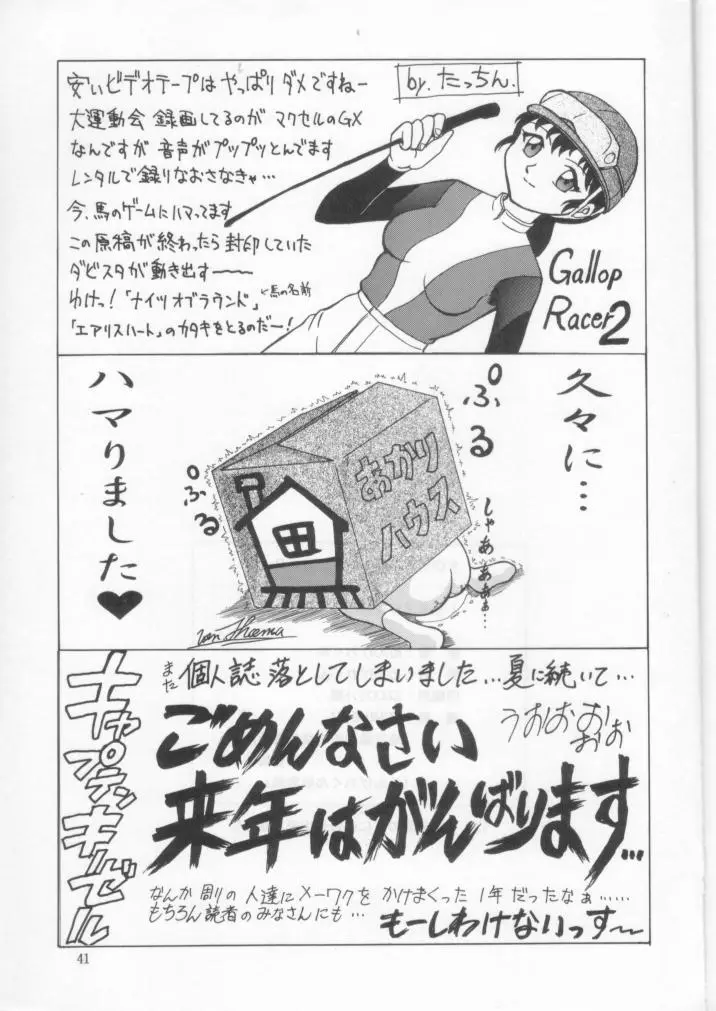 安いビデオテープは やっぱり ダメですねー
大運動会 録画してるのが マクセルのGX
なんですが 音声がプップッとんでます
レンタルで録りなおさなきゃ…
今、馬のゲームにハマってます
この原稿が終わったら封印していた
ダビスタが動き出す〜〜〜
ゆけっ!「ナイツオブラウンド」←馬の名前
「エアリスハート」のカタキをとるのだー!
by. たっちん.
Gallop
Racer 2
久々に…
ハマりました♥
ぷる
ぷる
あかり
ハウス
しゃあぁぁぁ…
また 個人誌 落としてしまいました…夏に続いて…
ごめんなさい
うおおお
おお
来年はがんばります…
キャプテンキルゼル
なんか 周りの 人達に メーワクを かけまくった 1年 だったなぁ……
もちろん 読者の みなさんにも…
もーしわけないっすー
41